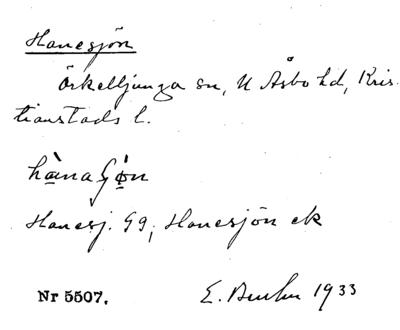 Hanesjön
Örkelljunga sn, N Åsbo hd, Kris-
tianstads l.
hàna ʃö̀n
Hanesj. G9, Hanesjön ek
Nr 5507. E. 1933